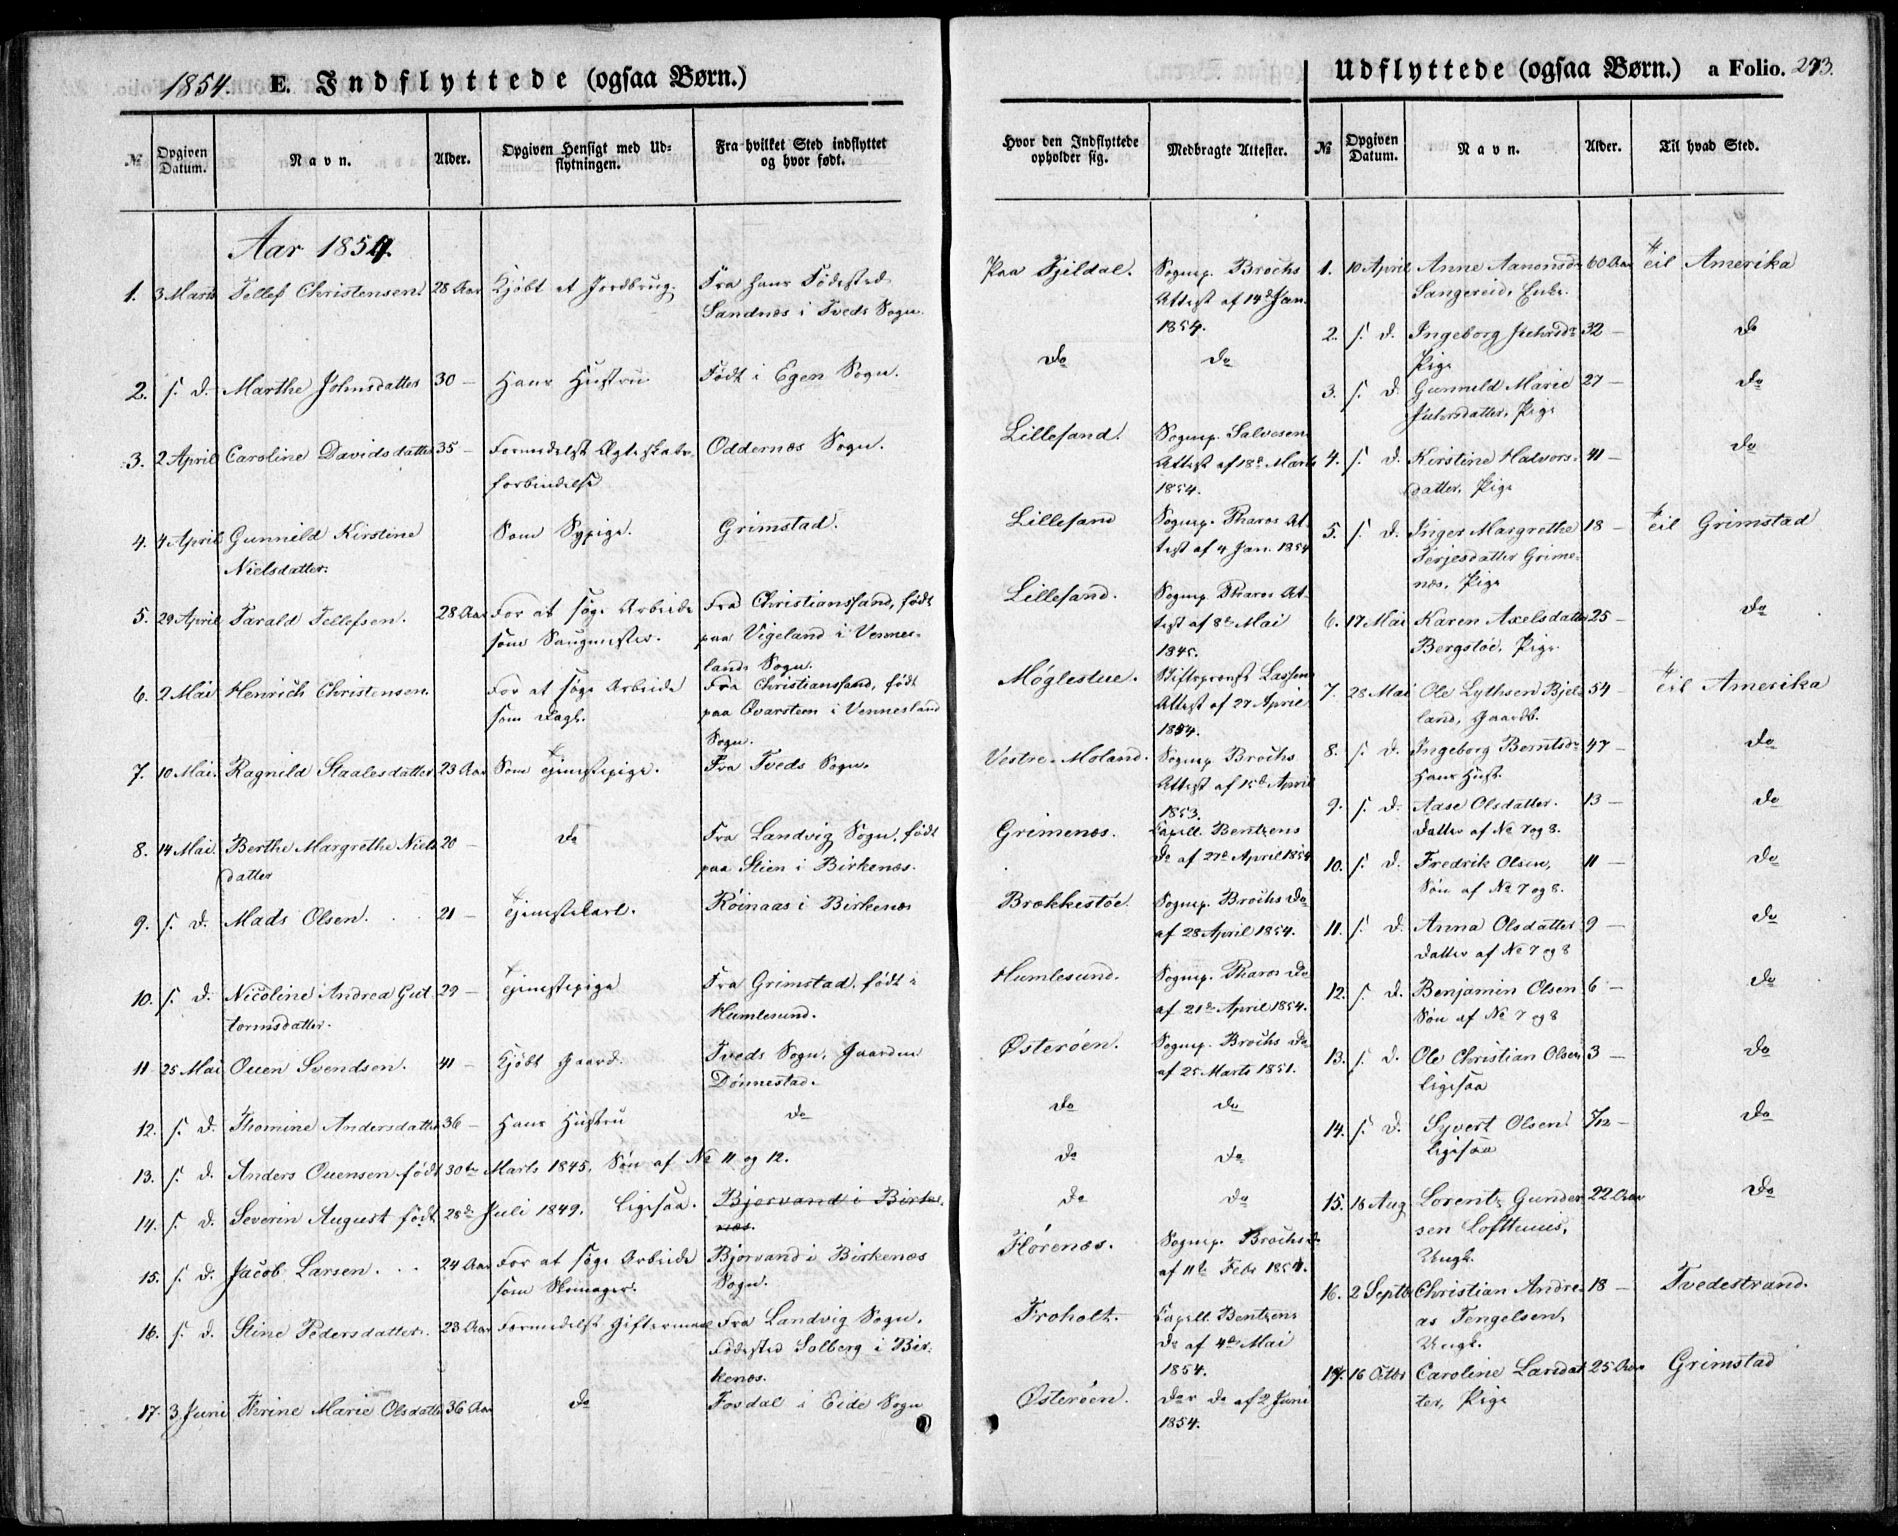 1854. E. Indflyttede (ogsaa Børn.)
Udflyttede (ogsaa Børn.) a Folio. 273.
№ Opgiven Datum. Navn. Alder. Opgiven Hensigt med Udflytningen. Fra hvilket Sted indflyttet og hvor født.
Hvor den Indflyttede opholder sig. Medbragte Attester. № Opgiven Datum. Navn. Alder. Til hvad Sted.
Aar 1854.
1. 3 Marts Tellef Christensen. 28 Aar Kjöbt et Jordbrug. Fra hans Födested
Sandnæs i Tveds Sogn.
2. s. D. Marthe Johnsdatter 30 — Hans Hustru Födt i Egen Sogn.
3. 2 April Caroline Davidsdatter 35 — Formedelst Ægteskabs- Oddernæs Sogn.
forbindelse
4. 4 April Gunnild Kirstine Som Sypige. Grimstad.
Nielsdatter.
5. 29 April Tarald Tellefsen. 28 Aar For at søge Arbeide Fra Christianssand, født
som Saugmester. paa Vigeland i Vennes-
lands Sogn.
6. 2 Mai Henrich Christensen. For at søge Arbeide Fra Christianssand, født
som Dagl. paa Qvarsteen i Vennesland
Sogn.
7. 10 Mai. Ragnild Staalesdatter 23 Aar Som Tjenestepige. Fra Tveds Sogn.
8. 14 Mai. Berthe Margrethe Niels 20 — do Fra Landvig Sogn, født
datter paa Stien i Birkenæs.
9. s. D. Mads Olsen. 21 — Tjenestekarl. Röinaas i Birkenæs
10. s. D. Nicoline Andrea Gut 29 — Tjenestepige Fra Grimstad, født i
tormsdatter. Humlesund.
11 25 Mai Ouen Svendsen. 41 — Kjöbt Gaard. Tveds Sogn, Gaarden
Dönnestad.
12. s. D. Thomine Andersdatter 36 — Hans Hustru do
13. s. D. Anders Ouensen født 30te Marts 1845. Søn af No 11 og 12.
14. s. D. Severin August født 28de Juli 1849. Ligesaa. Bjorvand i Birke-
næs.
15. s. D. Jacob Larsen. 24 Aar For at søge Arbeide Bjorvand i Birkenæs
som Skomager. Sogn.
16. s. D. Stine Pedersdatter. 23 Aar Formedelst Giftermaal Fra Landvig Sogn.
Fødested Solberg i Bir-
kenæs.
17. 3 Juni Thrine Marie Olsdatter 36 Aar do Fosdal i Eide Sogn
Paa Fjeldal. Sognep. Brochs
Attest af 14de Jan.
1854.
do do
Lillesand. Sognep. Salvesens
Attest af 18de Marts
1854.
Lillesand Sognep. Tharos At-
test af 4 Jan. 1854
Lillesand. Sognep. Tharos At-
test af 8de Mai
1845.
Møglestue. Stiftsprovst Lassens
Attest af 27 April
1854.
Vestre-Moland. Sognep. Brochs
Attest af 15de April
1853.
Grimenæs. Capell. Bentzens
do af 27de April 1854
Brækkestöe. Sognep. Brochs do
af 28 April 1854.
Humlesund. Sognep. Tharos do
af 21de April 1854.
Østeröen. Sognep. Brochs do
af 25 Marts 1851.
do do
do do
do do
Hörenæs. Sognep. Brochs do
af 11te Febr 1854.
Froholt. Capell. Bentzens
do af 4de Mai
1854.
Østeröen. do do af 2 Juni
1854.
1. 10 April Anne Aanonsdr 60 Aar Til Amerika
Sangereid, Enke.
2. s. D. Ingeborg 32 — do
Pige
3. s. D. Gunnuld Marie 27 — do
Pige
4. s. D. Kirstine Halvors- 41 — do
datter, Pige
5. s. D. Inger Margrethe 18 — Til Grimstad
Terjesdatter Grime-
næs, Pige
6. 17 Mai Karen Axelsdatter 25 — do
Bergstöe, Pige
7. 28 Mai Ole Lythsen Bjel- 54 — Til Amerika
land, Gaardb.
8. s. D. Ingeborg Berntsdr 47 — do
Hans Hust.
9. s. D. Aase Olsdatter. 13 — do
Datter af No 7 og 8.
10. s. D. Fredrik Olsen, 11 — do
Søn af No 7 og 8.
11. s. D. Anna Olsdatter 9 — do
Datter af No 7 og 8
12. s. D. Benjamin Olsen 6 — do
Søn af No 7 og 8
13. s. D. Ole Christian Olsen 3 — do
Ligesaa
14. s. D. Syvert Olsen 7/12 — do
Ligesaa
15. 18 Aug Lorentz Gunder 22 Aar do
sen Lofthuus,
Ungk.
16. 2 Septbr Christian Andre- 18 — Tvedestrand.
as Tengelsen,
Ungk.
17. 16 Octbr Caroline Larsdat 25 Aar Grimstad
ter, Pige